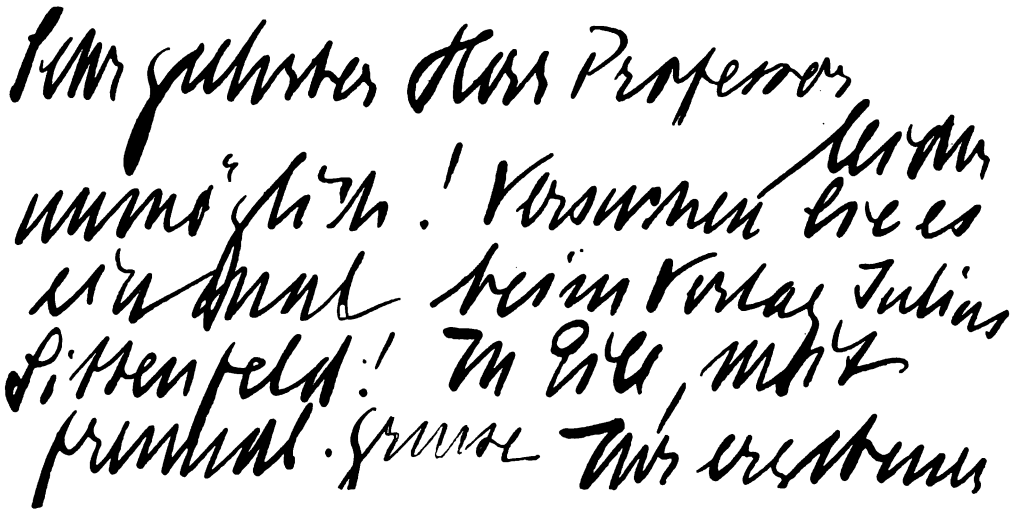 Sehr geehrter Herr Professor
leider
unmöglich! Versuchen Sie es
einmal beim Verlag Julius
Sittenfeld! In Eile, mit
freundl. Grusse Ihr ergebener